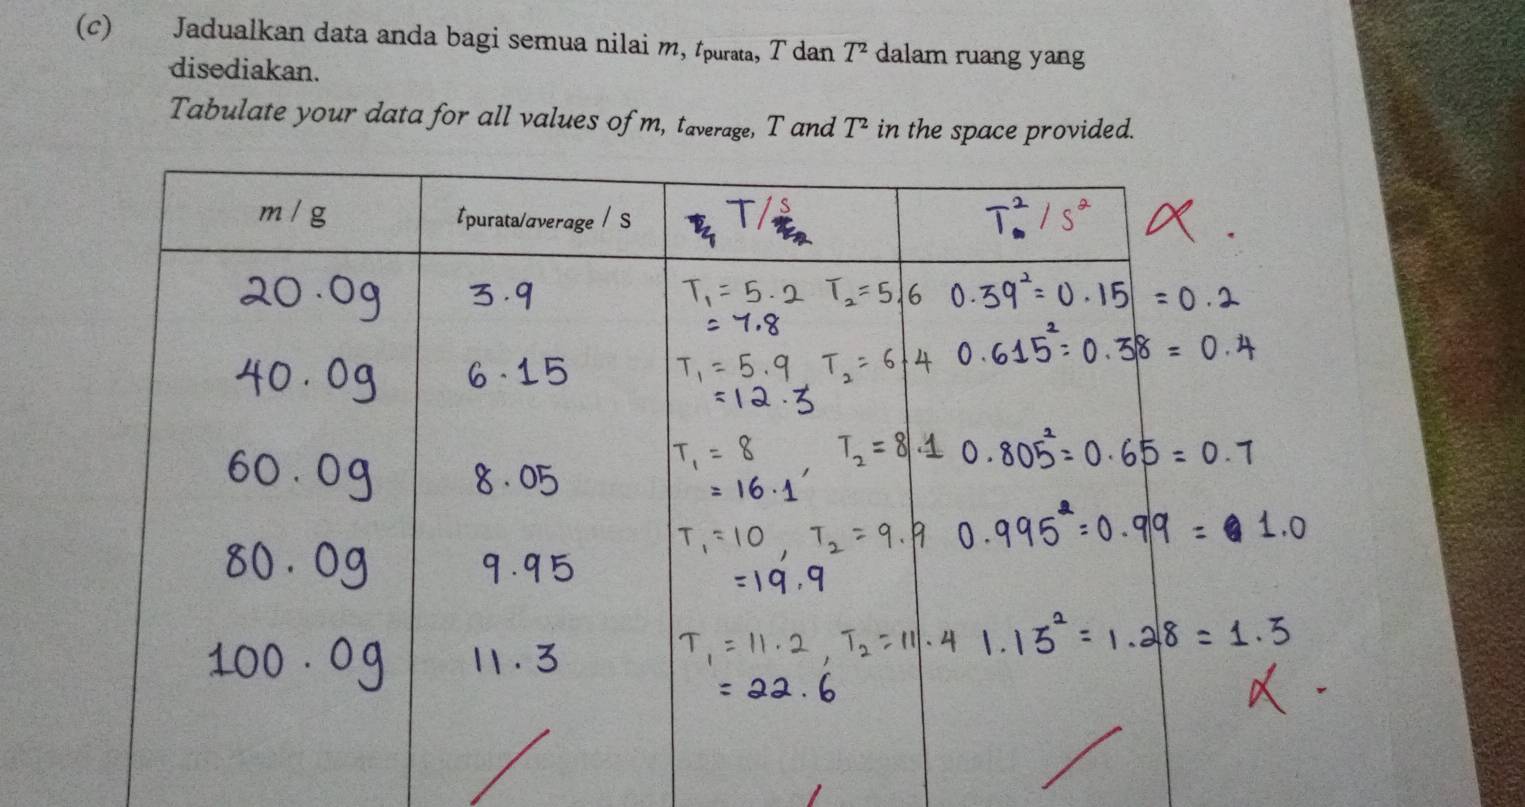 (c) Jadualkan data anda bagi semua nilai m, tpurata, T dan T² dalam ruang yang
disediakan.
Tabulate your data for all values of m, taverage, T and T² in the space provided.
m / g tpurata/average / s T/s T² / s²
20.0g 3.9 T₁ = 5.2 T₂ = 5.6 0.39² = 0.15 = 0.2
= 7.8
40.0g 6.15 T₁ = 5.9, T₂ = 6.4 0.615² = 0.38 = 0.4
= 12.3
60.0g 8.05 T₁ = 8, T₂ = 8.1 0.805² = 0.65 = 0.7
= 16.1
80.0g 9.95 T₁ = 10, T₂ = 9.9 0.995² = 0.99 = 1.0
= 19.9
100.0g 11.3 T₁ = 11.2, T₂ = 11.4 1.13² = 1.28 = 1.3
= 22.6